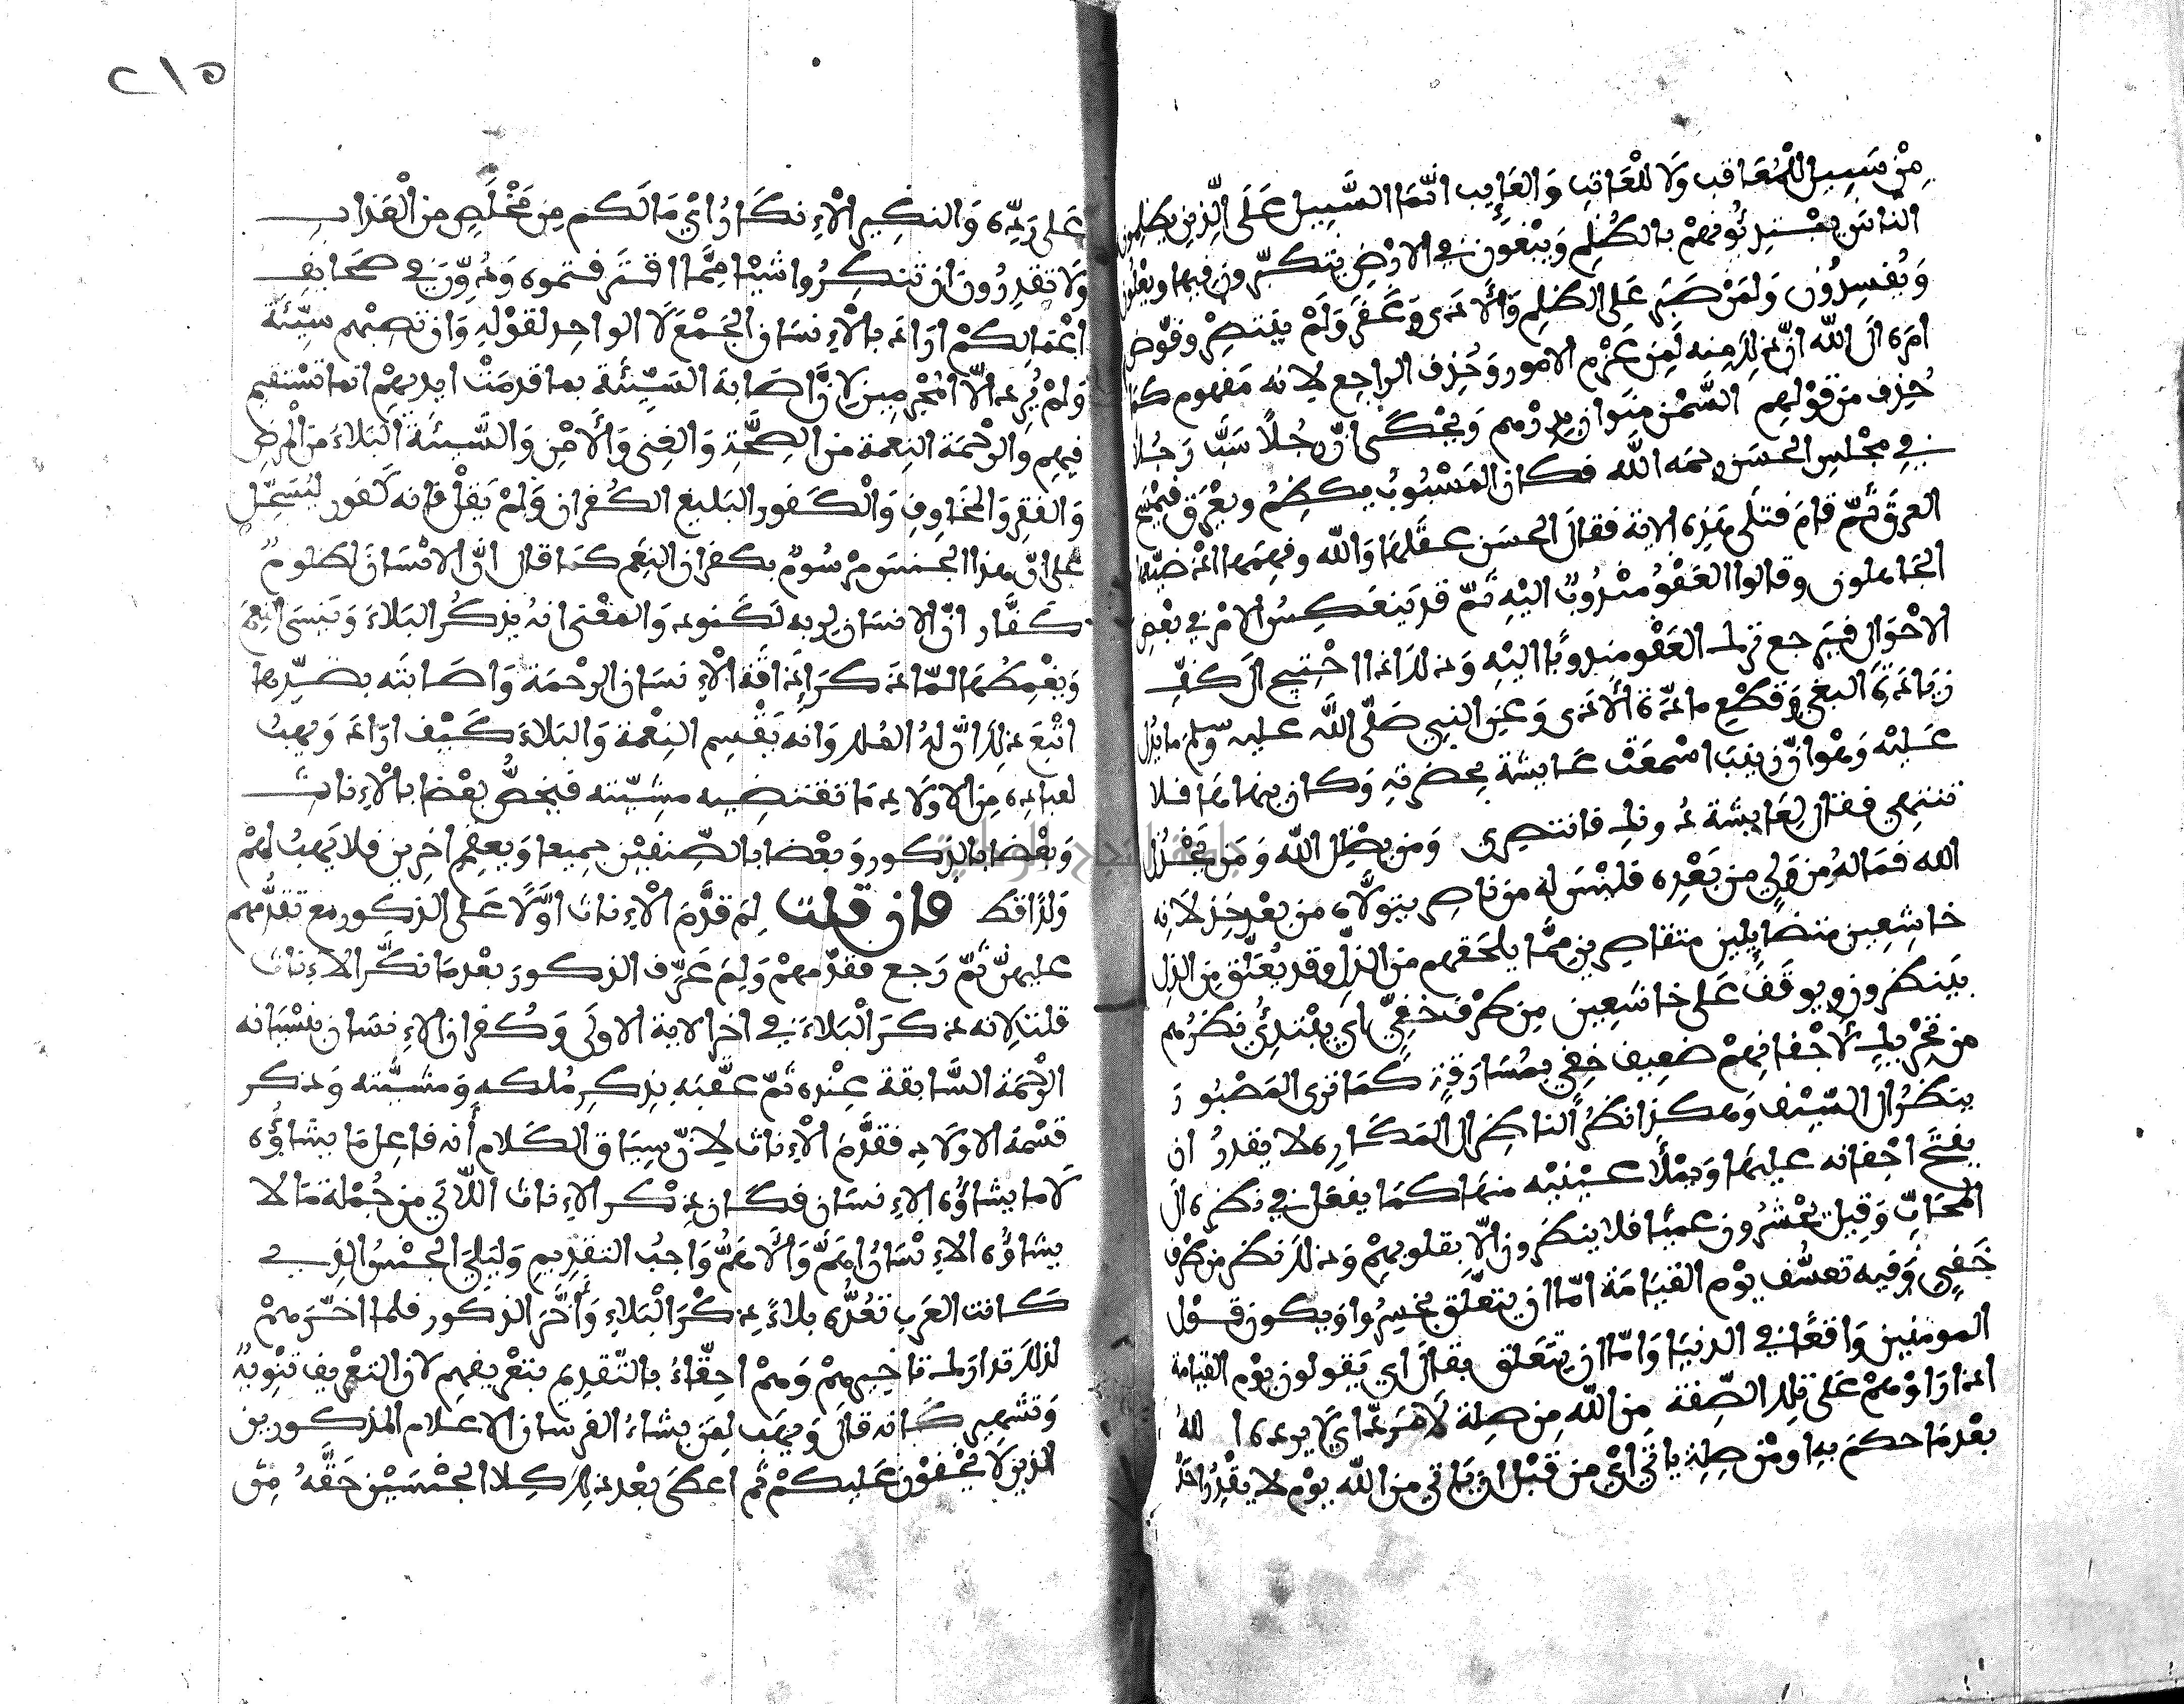 مِنْ سَبِيل لِلْمُعَاقب وَلَا لِلْعَاتِب وَالعَايِب انَّمَا السَّبِيل عَلَى الَّذِين يظلِمون
الناسَ يَبْتَدِئُونهمْ بالظُلم وَيَبْغون في الارْض يتكبّرون فيها ويعْلون
وَيُفسِدُون وَلَمَنْ صَبَرَ عَلى الظلم وَالْأذى وَغَفَرَ وَلَمْ يَنتصِرْ وفوّض
امرَه الَى اللّه انّ ذلِكَ منه لَمِن عَزْم الامور وَحُذِف الراجع لانه مَفهوم كمَا
حُذِف من قوْلهم السَّمْن مَنَوان بِدِرْهم وَيُحْكَى انّ رَجُلاً سَبَّ رَجُلا
في مَجْلِس الحَسَن رحمَه اللّه فكان المَسْبُوبُ يكظِمُ ويعْرَق فيَمْسَح
العرقَ ثمّ قامَ فتَلَى هَذِه الاية فقالَ الحسَن عقَلهَا وَاللّه وفهمَها اذ ضيّعها
الجَاهلون وقالوا العَفْوُ مَنْدُوبٌ اليْهِ ثمّ قد يَنعَكِسُ الامْر في بعْض
الاحْوَال فيَرجع ترك العَفْو مندوبًا اليْهِ وَذلك اذا احْتِيج الَى كَفّ
زيَادَة البغي وَقطْع مادّة الْأذى وَعَن النبي صَلّى اللّه عليه وسلم ما يدُل
عَليْه وَهوَ انّ زيْنَبَ اسْمَعَتْ عَايشة بحَضرته وَكان ينهاهَا فلا
تنتهي فقال لِعَايشة دُونك فانتصِري وَمَن يضْلِل اللّه وَمَن يخْذل
اللّه فمَا لهُ مِن وَليٍّ من بَعْدِه فليْسَ له من ناصِر يتوَلّاه من بعْد خِذلانه
خاشِعِين متضايِلين متقاصِرين ممَّا يلحَقهم من الذلّ وقد يُعَلَّق مِن الذل
بينظرون ويوقَف عَلى خاشعِين مِن طرْف خفيٍّ اي يبْتدئ نظرُهم
من تحْريك لأجْفانِهمْ ضعِيف خفي بمُسَارَقةٍ كمَا ترى المَصْبُورَ
ينظرُ الى السَّيْف وَهكذا نظَرُ الناظِر الى المَكارِه لا يقدرُ ان
يفتَح اجْفانه عليها وَيمْلأ عيْنيْه منهَا كمَا يفعَل في نظره الَى
المحَابّ وَقِيل يحْشرُون عميًا فلا ينظرون الّا بقلوبهمْ وَذلك نظر من طرْف
خَفيٍ وَفيه تعسُّف يوْم القيَامَة امّا ان يتعلّق بخسِرُوا وَيكون قوْل
المومنين وَاقعًا في الدنيَا وَامّا ان يتعَلق بقالَ اي يَقولون يوْم القيامة
اذا رَاوْهمْ عَلى تلك الصِّفة مِن اللّه مِن صِلة لا مَرَدّ اي لا يرده اللهُ
بعْدمَا حكمَ بهِ او مْن صِلة ياتي ايْ من قبْل ان يَاتي من اللّه يوْم لا يقْدِرُ احَدٌ
٢١٥
عَلى رَدّه وَالنكِير الْإنكَارُ ايْ مَا لَكم مِن مَخْلَصٍ من الْعَذاب
وَلَا تقدِرُونَ ان تنكِرُوا شيْئا مِمَّا اقترفتموه وَدُوِّنَ في صَحَايف
اعْمَالكمْ ارَادَ بالْإنسَان الجَمْعَ لَا الواحِد لقوْله وَان تصِبْهم سيّئة
وَلمْ يُرِد الّا المُجْرمِين لِأنَّ اصَابة السَّيِّئة بما قدمَتْ ايديهمْ انما تسْتقيم
فيهم والرّحْمَة النِعمة من الصِحَّة وَالغِنى وَالْأمْن وَالسَّيئة الْبَلاءَ من المرض
وَالفقر وَالمَخاوِف وَالْكَفور البَليغ الكُفران وَلمْ يَقلْ فانه كَفور ليُسَجِّل
عَلى انّ هذا الجنسَ موْسُومٌ بكفرَان النِعَم كمَا قال انّ الانْسَان لظلومٌ
كَفَّار انّ الانسَان لربه لَكَنود وَالمعْنى انهُ يذكُر البَلاءَ وَيَنسَى النِعَمَ
وَيَغمِطُهَا لمّا ذكرَ اذاقَة الْإنسَان الرحْمَة وَاصَابته بضدِّها
اتْبَعَ ذلك انّ لهُ الملك وَانّه يَقسِم النِعْمة وَالبَلاءَ كَيْف ارَادَ وَيهبُ
لعبَادِه مِن الاوْلَاد مَا تقتضيه مشِيّته فيَخصُّ بعْضا بالْإناث
وَبعْضا بالذكور وَبعْضا بالصِّنفيْن جميعا وَيعقِم اخرين فلا يَهبُ لهمْ
وَلدًا قط فان قلت لِمَ قدَّمَ الْإناث اوَّلًا عَلى الذكور مع تقدُّمهم
عليهنّ ثمّ رَجع فقدّمهمْ وَلِمَ عَرَّف الذكورَ بعْدمَا نكَّر الْإناث
قلت لانه ذكرَ الْبَلاءَ في اخر الاية الاولَى وَكُفرانَ الْإنسَان بنسْيَانه
الرّحْمَة السَّابقة عِنْده ثمّ عقّبَه بذكِر مُلكه وَمشيّته وَذكر
قسْمة الاوْلَاد فقدَّمَ الْإناث لِأنّ سِيَاق الكَلام أنه فاعل مَا يشاؤُه
لا ما يشاؤُه الْإنسَان فكان ذكْر الْإناث اللّاتي من جُمْلة مَا لا
يشاؤُه الْإنْسَان اهَمَّ وَالْأهَمُّ وَاجبُ التقدِيم وَليَليَ الجنْسُ الذي
كانت العَرب تعُدُّه بلاءً ذكْرَ الْبَلاءِ وَأخَّرَ الذكور فلما اخّرَهمْ
لذلك تدارَك تاخِيرهمْ وَهمْ احِقّاءُ بالتّقدِيم بتعْريفهِم لان التعْريف تنْويهٌ
وَتشْهير كَانه قالَ وَيَهب لِمَن يشاءُ الفرسَان الاعلام المذكورين
الذين لا يخْفوْن عَليكمْ ثم اعطى بعْد ذلك كِلا الجنْسَيْن حَقّهُ مِن